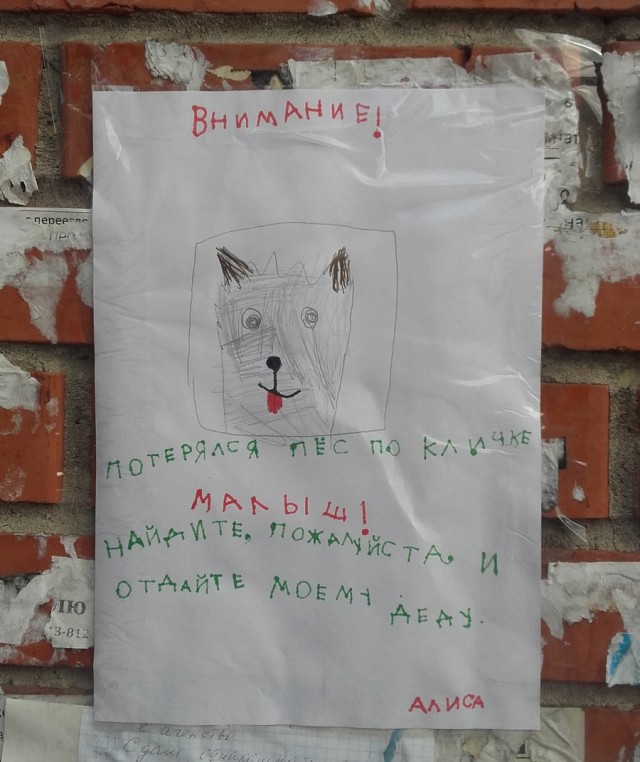 ВНИМАНИЕ!
ПОТЕРЯЛСЯ ПЁС ПО КЛИЧКЕ
МАЛЫШ!
НАЙДИТЕ, ПОЖАЛУЙСТА, И
ОТДАЙТЕ МОЕМУ ДЕДУ.
АЛИСА
с перее
ЛЮ
3-812
с агенства
Сдам